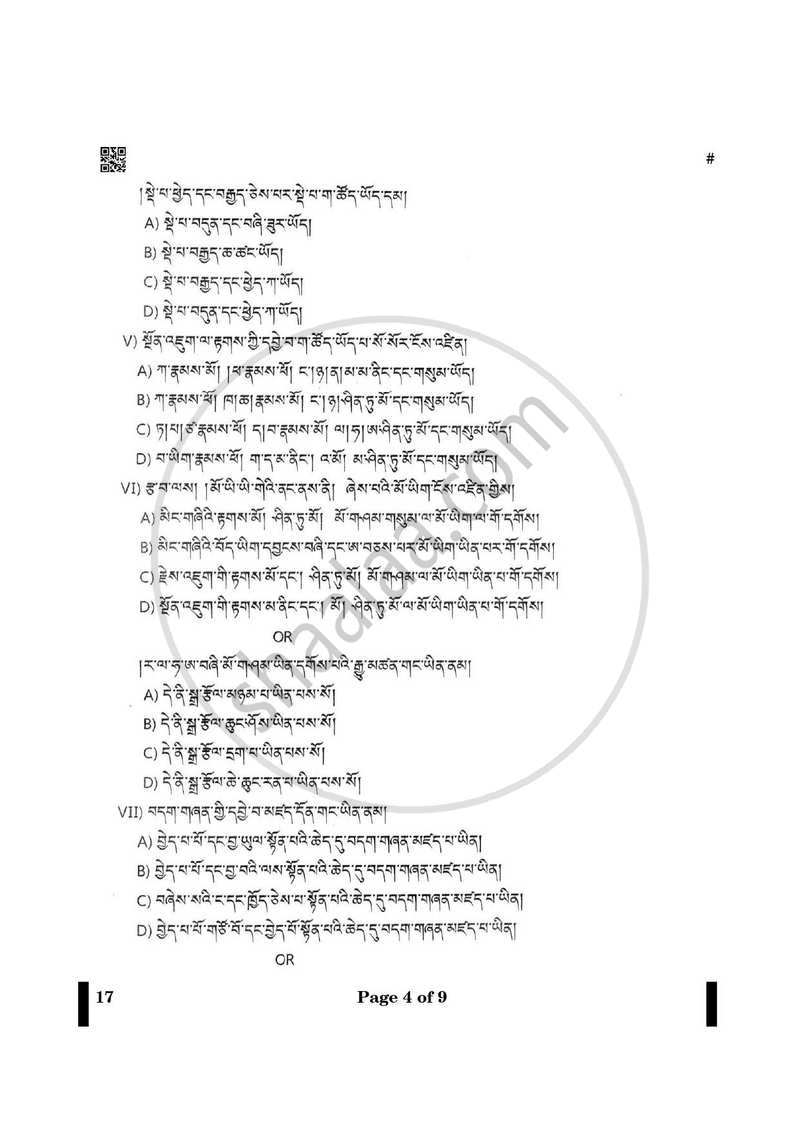 #
།སྡེ་པ་ཕྱེད་དང་བརྒྱད་ཅེས་པར་སྡེ་པ་ག་ཚོད་ཡོད་དམ།
A) སྡེ་པ་བདུན་དང་བཞི་ཟུར་ཡོད།
B) སྡེ་པ་བརྒྱད་ཆ་ཚང་ཡོད།
C) སྡེ་པ་བརྒྱད་དང་ཕྱེད་ཀ་ཡོད།
D) སྡེ་པ་བདུན་དང་ཕྱེད་ཀ་ཡོད།
V) སྔོན་འཇུག་ལ་རྟགས་ཀྱི་དབྱེ་བ་ག་ཚོད་ཡོད་པ་སོ་སོར་ངོས་འཛིན།
A) ཀ་རྣམས་མོ། །ཕ་རྣམས་ཕོ། ང་།ཉ།ན།མ་མ་ནིང་དང་གསུམ་ཡོད།
B) ཀ་རྣམས་ཕོ། ཁ།ཆ།རྣམས་མོ། ང་།ཉ།ཤིན་ཏུ་མོ་དང་གསུམ་ཡོད།
C) ཏ།པ།ཙ་རྣམས་ཕོ། ད།བ་རྣམས་མོ། ལ།ཧ།ཨ་ཤིན་ཏུ་མོ་དང་གསུམ་ཡོད།
D) བ་ཡིག་རྣམས་ཕོ། ག་ད་མ་ནིང་། འ་མོ། མ་ཤིན་ཏུ་མོ་དང་གསུམ་ཡོད།
VI) རྩ་བ་ལས། །མོ་ཡི་ཡི་གེའི་ནང་ནས་ནི། ཞེས་པའི་མོ་ཡིག་ངོས་འཛིན་གྱིས།
A) མིང་གཞིའི་རྟགས་མོ། ཤིན་ཏུ་མོ། མོ་གཤམ་གསུམ་ལ་མོ་ཡིག་ལ་གོ་དགོས།
B) མིང་གཞིའི་བོད་ཡིག་དབྱངས་བཞི་དང་ཨ་བཅས་པར་མོ་ཡིག་ཡིན་པར་གོ་དགོས།
C) རྗེས་འཇུག་གི་རྟགས་མོ་དང་། ཤིན་ཏུ་མོ། མོ་གཤམ་ལ་མོ་ཡིག་ཡིན་པ་གོ་དགོས།
D) སྔོན་འཇུག་གི་རྟགས་མ་ནིང་དང་། མོ། ཤིན་ཏུ་མོ་ལ་མོ་ཡིག་ཡིན་པ་གོ་དགོས།
OR
།ར་ལ་ཧ་ཨ་བཞི་མོ་གཤམ་ཡིན་དགོས་པའི་རྒྱུ་མཚན་གང་ཡིན་ནམ།
A) དེ་ནི་སྒྲ་རྩོལ་མཉམ་པ་ཡིན་པས་སོ།
B) དེ་ནི་སྒྲ་རྩོལ་ཆུང་ཤོས་ཡིན་པས་སོ།
C) དེ་ནི་སྒྲ་རྩོལ་དྲག་པ་ཡིན་པས་སོ།
D) དེ་ནི་སྒྲ་རྩོལ་ཆེ་ཆུང་རན་པ་ཡིན་པས་སོ།
VII) བདག་གཞན་གྱི་དབྱེ་བ་མཛད་དོན་གང་ཡིན་ནམ།
A) བྱེད་པ་པོ་དང་བྱ་ཡུལ་སྟོན་པའི་ཆེད་དུ་བདག་གཞན་མཛད་པ་ཡིན།
B) བྱེད་པ་པོ་དང་བྱ་བའི་ལས་སྟོན་པའི་ཆེད་དུ་བདག་གཞན་མཛད་པ་ཡིན།
C) བཞེས་སའི་ང་དང་ཁྱོད་ཅེས་པ་སྟོན་པའི་ཆེད་དུ་བདག་གཞན་མཛད་པ་ཡིན།
D) བྱེད་པ་པོ་གཙོ་བོ་དང་བྱེད་པོ་སྟོན་པའི་ཆེད་དུ་བདག་གཞན་མཛད་པ་ཡིན།
OR
17 Page 4 of 9
shaalaa.com